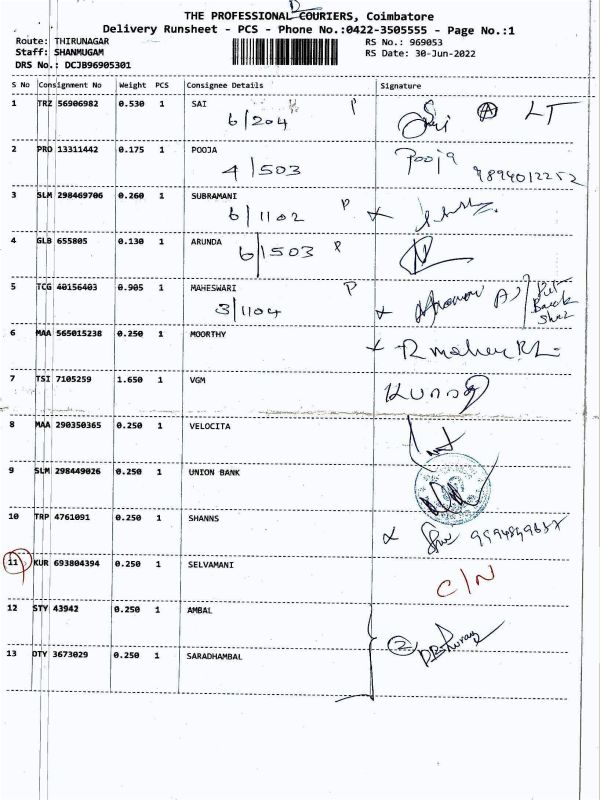 THE PROFESSIONAL COURIERS, Coimbatore
Delivery Runsheet - PCS - Phone No.:0422-3505555 - Page No.:1
Route: THIRUNAGAR
Staff: SHANMUGAM
DRS No.: DCJB96905301
RS No.: 969053
RS Date: 30-Jun-2022
S No Consignment No Weight PCS Consignee Details Signature
1 TRZ 56906982 0.530 1 SAI P
6/204 Sai A LT
2 PRO 13311442 0.175 1 POOJA Pooja
4/503 9894012252
3 SLM 298469706 0.260 1 SUBRAMANI P
6/1102
4 GLB 655805 0.130 1 ARUNDA
6/503 P
5 TCG 40156403 0.905 1 MAHESWARI P
3/1104
6 MAA 565015238 0.250 1 MOORTHY
7 TSI 7105259 1.650 1 VGM
8 MAA 290350365 0.250 1 VELOCITA
9 SLM 298449026 0.250 1 UNION BANK
10 TRP 4761091 0.250 1 SHANNS
11 KUR 693804394 0.250 1 SELVAMANI
C/N
12 STY 43942 0.250 1 AMBAL
2
13 DTY 3673029 0.250 1 SARADHAMBAL